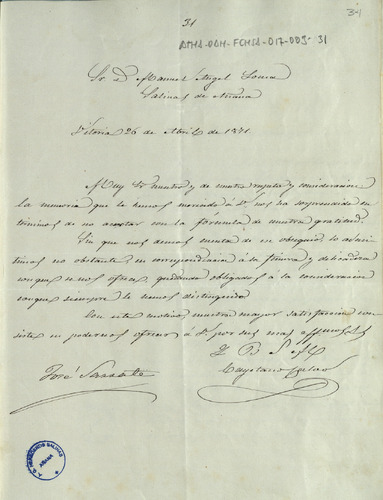 31
34
ATHA-DAH-FCHSA-017-009-31
Sr. D. Manuel Angel
Salinas de Añana
Vitoria 26 de Abril de 1871.
Muy Sr. nuestro y de nuestro respeto y consideracion
la memoria que le hemos merecido á V. nos ha sorprendido en
terminos de no acertar con la fórmula de nuestra gratitud.
Sin que nos demos cuenta de su obsequio lo admi-
timos no obstante, en correspondencia á la finura y delicadeza
conque se nos ofrece, quedando obligados á la consideracion
conque siempre le hemos distinguido
Con este motivo nuestra mayor satisfaccion con-
siste en podernos ofrecer á V. por sus mas affmos. S. S.
Q B S M
José
Cayetano
SALINAS
AÑANA